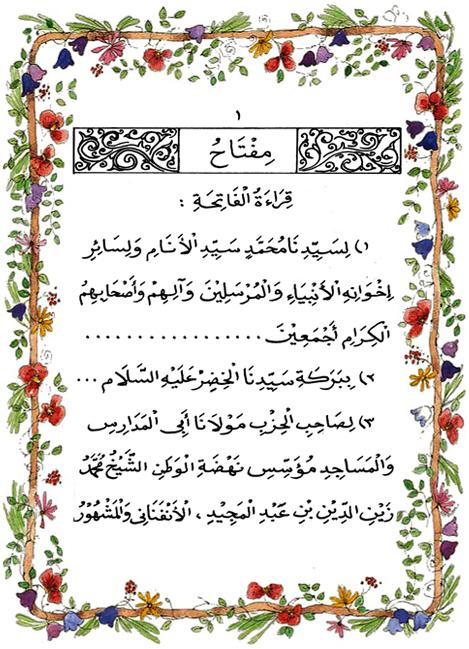 ١
مِفْتَاحُ
قِرَاءَةُ الْفَاتِحَةِ :
١) لِسَيِّدِنَا مُحَمَّدٍ سَيِّدِ الْأَنَامِ وَلِسَائِرِ
اِخْوَانِهِ الْأَنْبِيَاءِ وَالْمُرْسَلِيْنَ وَآلِهِمْ وَأَصْحَابِهِمُ
الْكِرَامِ أَجْمَعِيْنَ ................
٢) بِبَرَكَةِ سَيِّدِنَا الْخَضِرْ عَلَيْهِ السَّلَام ...
٣) لِصَاحِبِ الْحِزْبِ مَوْلَانَا أَبِي الْمَدَارِسِ
وَالْمَسَاجِدِ مُؤَسِّسِ نَهْضَةِ الْوَطَنِ الشَّيْخُ مُحَمَّدْ
زَيْنِ الدِّيْنِ بْنِ عَبْدِ الْمَجِيْدِ ، الْأَنْفَنَانِي وَالْمَشْهُوْرُ